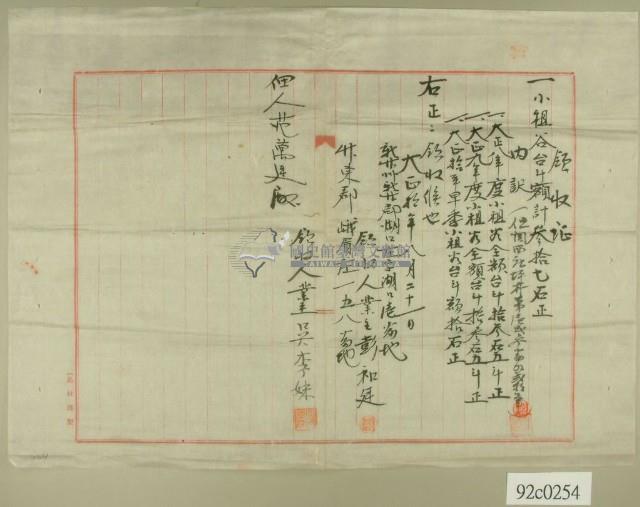 領收证
一小租谷台斗額計叄拾七石正
內訳
一大正八年度小租谷全額台斗拾叄石五斗正
一大正九年度小租谷全額台斗拾叄石五斗正
一大正拾年早季小租谷台斗額拾石正
右正ニ領收候也
大正拾年八月二十一日
新竹州新竹郡湖口庄
領收人業主彭和廷
竹東郡峨眉庄一五八番地
領收人業主吳李妹
佃人范萬廷殿
國史館臺灣文獻館
TAIWAN
92c0254